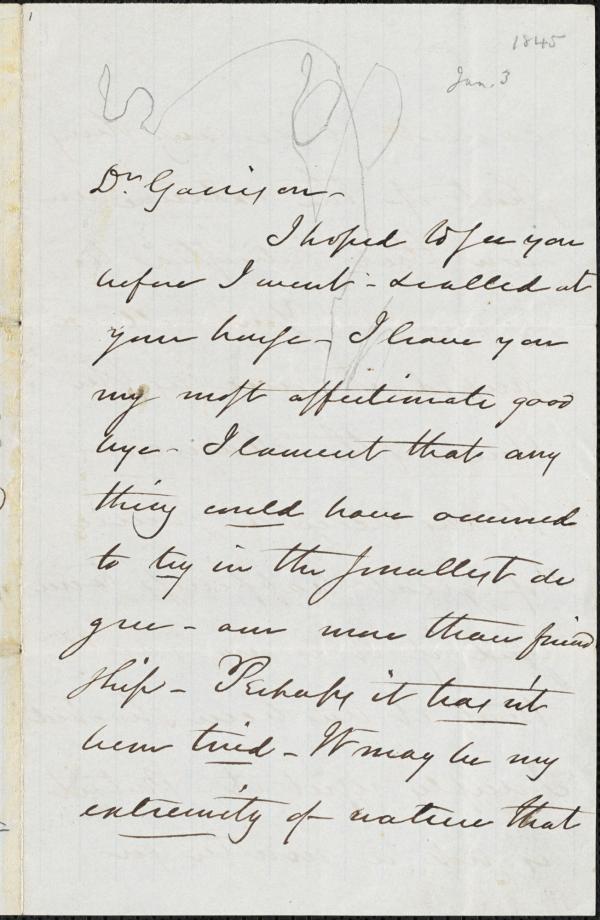 1845
Jan. 3
Dr. Garrison -
I hoped to see you
before I went - & called at
your house - I leave you
my most affectionate good
bye - I lament that any
thing could have occurred
to try in the smallest de
gree - our more than friend
ship - Perhaps it has n't
been tried - It may be my
extremity of nature that